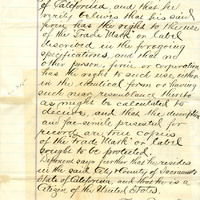 of California, and that he
verily believes that his said
firm has the right to the use
of the Trade Mark or Label
described in the foregoing
specifications, and that no
other person, firm or corporation
has the right to such use, either
in the identical form or having
such near resemblance thereto
as might be calculated to
deceive, and that the description
and fac-simile presented for
record are true copies
of the Trade Mark or Label
sought to be protected.
Deponent says further that he resides
in the said City & County of Sacramento
State of California, and that he is a
Citizen of the United States.